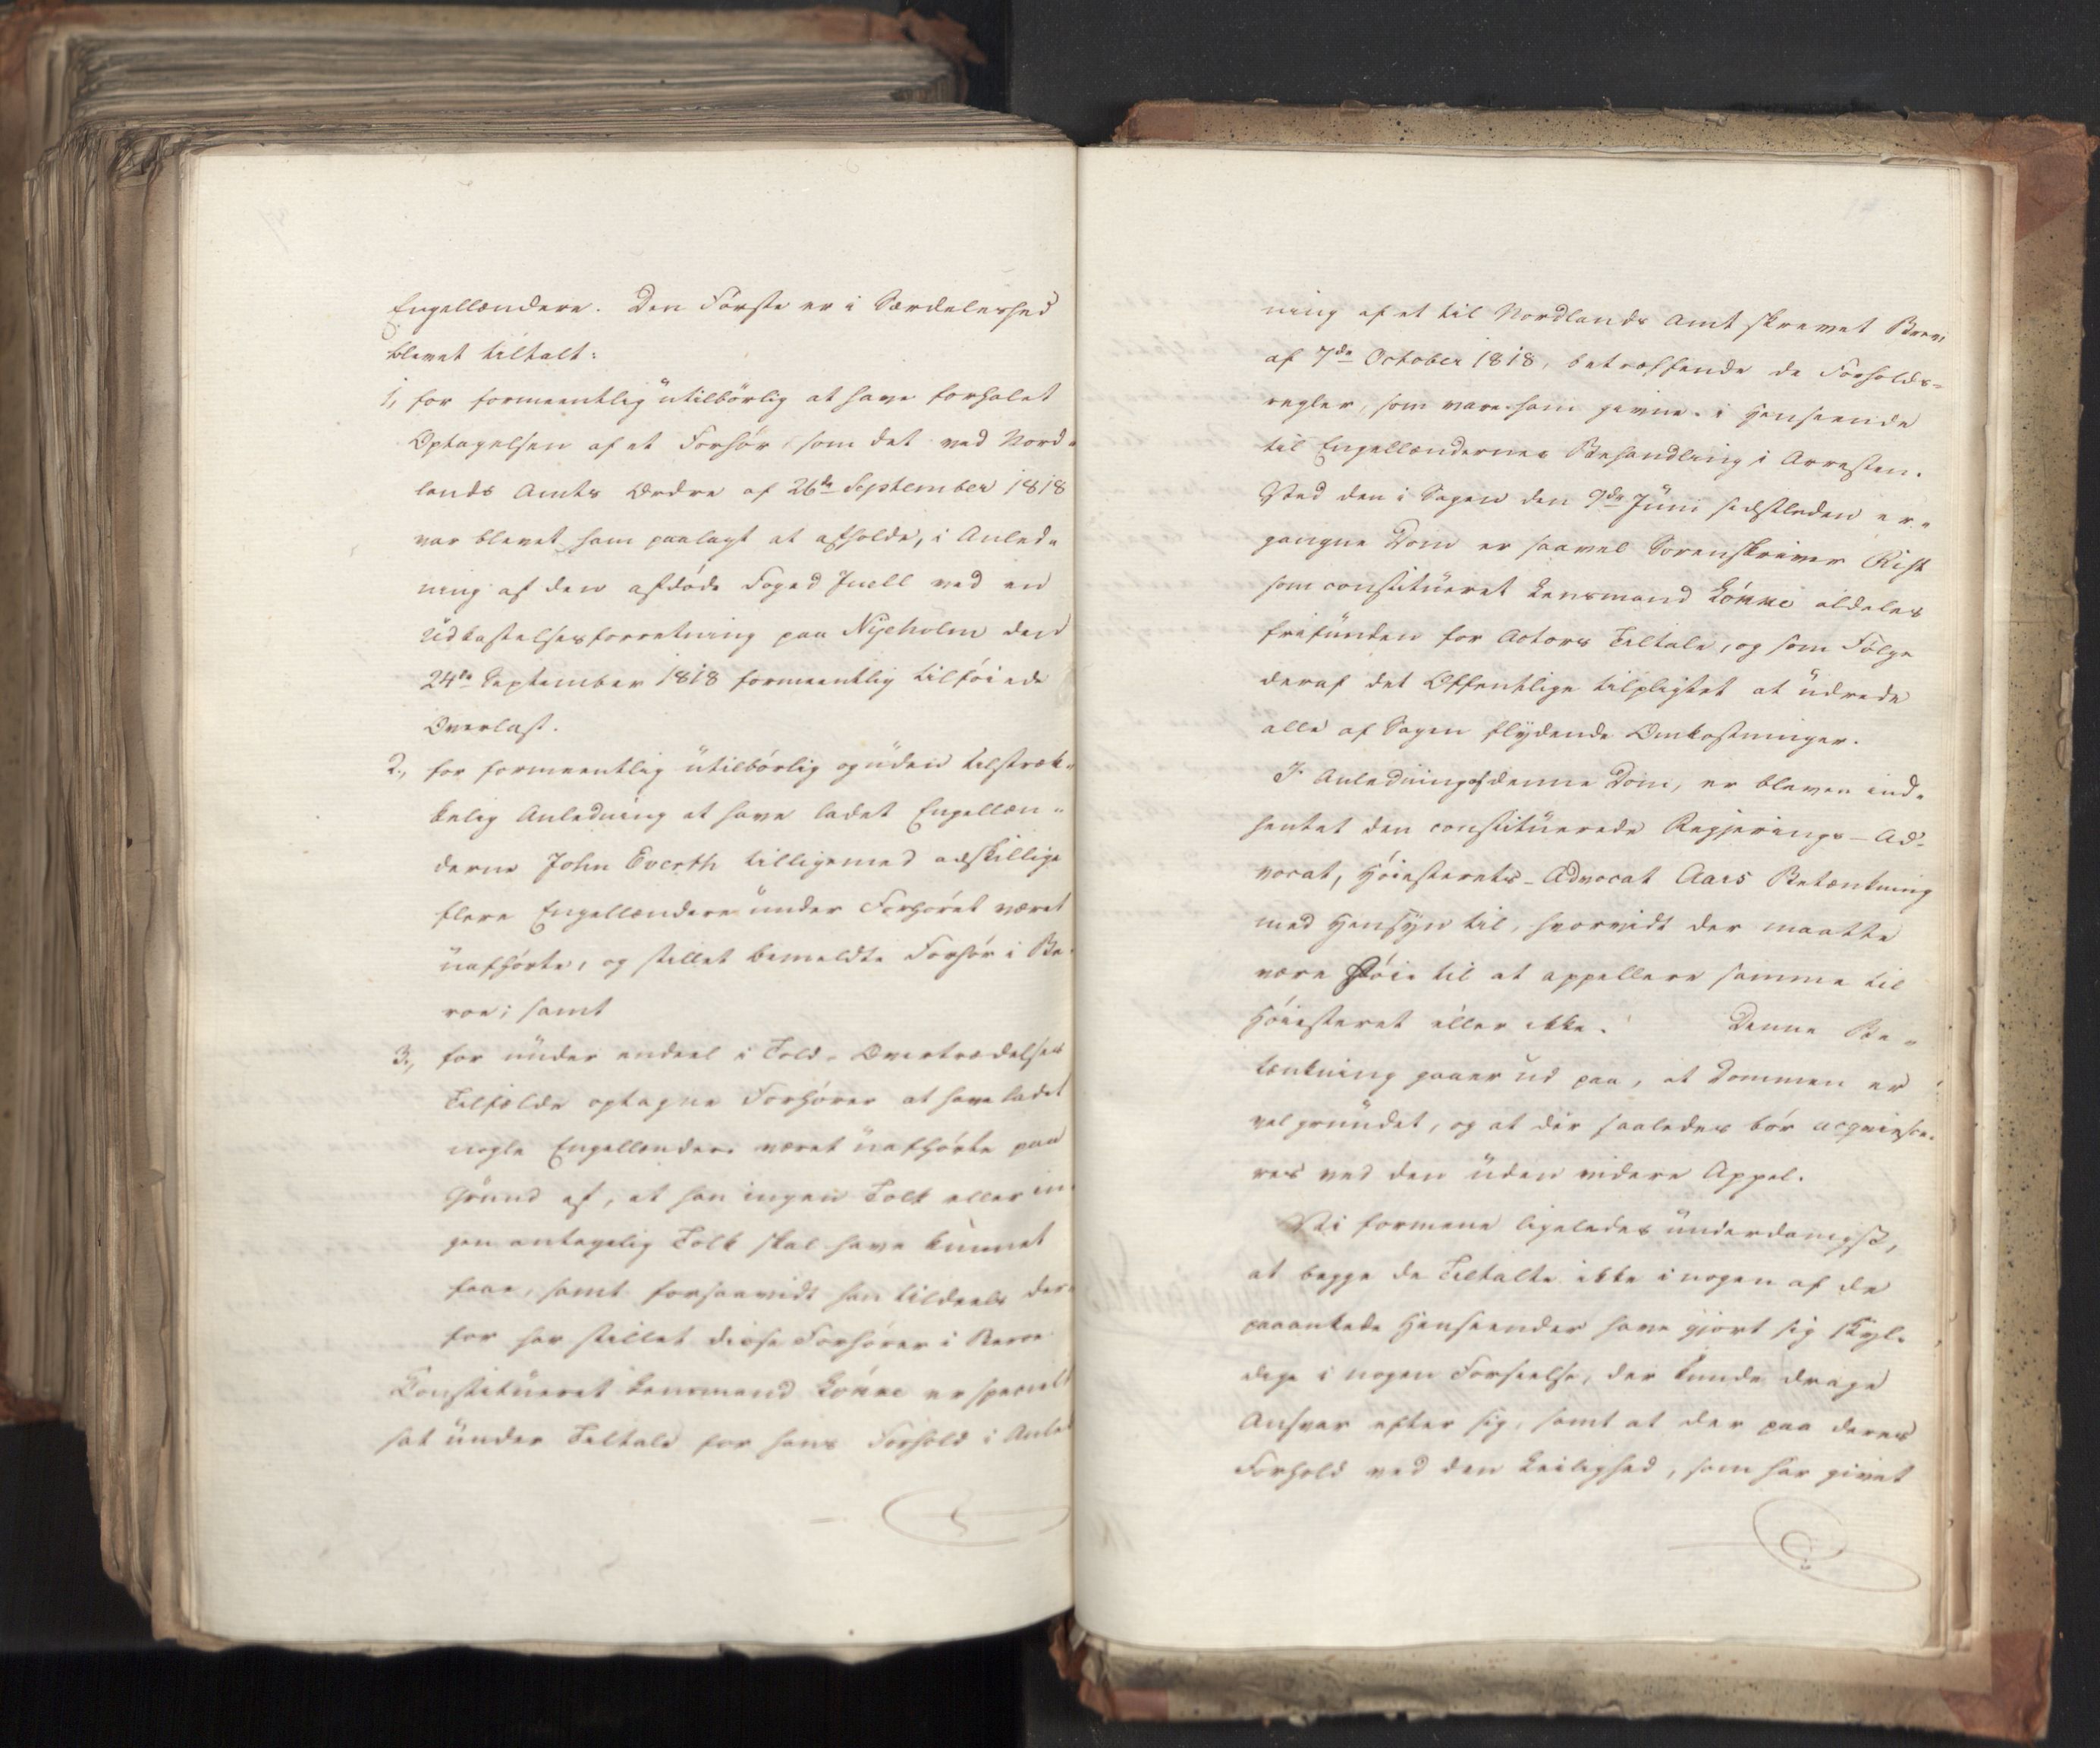 Engellændere. Den Første er i Særdeleshed
blevet tiltalt:
1, for formeentlig utilbørlig at have forhalet
Optagelsen af et Forhør, som det ved Nord-
lands Amts Ordre af 26de September 1818
var blevet ham paalagt at afholde, i Anled-
ning af den afdøde Foged Juell ved en
Udkastelsesforretning paa Nyeholm den
24de September 1818 formeentlig tilføiede
Overlast.
2., for formeentlig utilbørlig og uden tilstræk-
kelig Anledning at have ladet Engellæn-
derne John Everth tilligemed adskillige
flere Engellændere under Forhøret været
uafhørte, og stillet bemeldte Forhør i Be-
roe; samt
3., for under endeel i Told-Overtrædelses
Tilfælde optagne Forhører at have ladet
nogle Engellændere været uafhørte paa
Grund af, at han ingen Tolk eller in-
gen antagelig Tolk skal have kunnet
faae, samt forsaavidt han tildeels der-
for har stillet disse Forhører i Beroe
Constitueret Lensmand Lónne er specielt
sat under Tiltale for hans Forhold i Anled
ning af et til Nordlands Amt skrevet Brev
af 7de October 1818, betræffende de Forholds-
regler, som vare ham givne i Henseende
til Engellændernes Behandling i Arresten.
Ved den i Sagen den 9de Juni sidstleden er-
gangne Dom er saavel Sorenskriver Rist
som constitueret Lensmand Lónne aldeles
frifunden for Actors Tiltale, og som Følge
deraf det Offentlige tilpligtet at udrede
alle af Sagen flydende Omkostninger.
I Anledning af denne Dom, er bleven ind-
hentet den constituerede Regjerings-Ad-
vocat, Høiesterets-Advocat Aars Betænkning
med Hensyn til, hvorvidt der maatte
være Føie til at appellere samme til
Høiesteret eller ikke. Denne Be-
tænkning gaaer ud paa, at Dommen er
vel grundet, og at der saaledes bør acqviesce-
res ved den uden videre Appel.
Vi formene ligeledes underdanigst,
at begge de Tiltalte ikke i nogen af de
paaankede Henseender have gjort sig skyl-
dige i nogen Forseelse, der kunde drage
Ansvar efter sig, samt at der paa deres
Forhold ved den Leilighed, som har givet